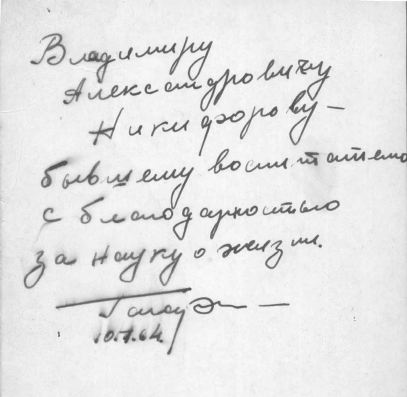 Владимиру
Александровичу
Никифорову –
бывшему воспитателю
с благодарностью
за науку о жизни.
10.1.64